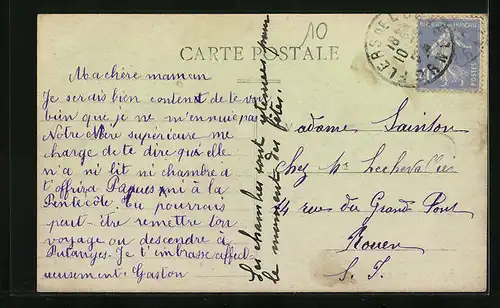 10
CARTE POSTALE
FLERS DE L'ORNE
18
10
Ma chère maman
Je serais bien content de te voir
bien que je ne m'ennuie pas
Notre Mère supérieure me
charge de te dire qu'elle
n'a ni lit ni chambre à
t'offrir à Pâques ni à la
Pentecôte. Tu pourrais
peut-être remettre ton
voyage ou descendre à
Putanges. Je t'embrasse affect
ueusement. Gaston
Les chambres sont retenues pour
le moment des fêtes.
Madame Sainton
chez Mr Lechevallier
14 rue du Grand Pont
Rouen
S. I.